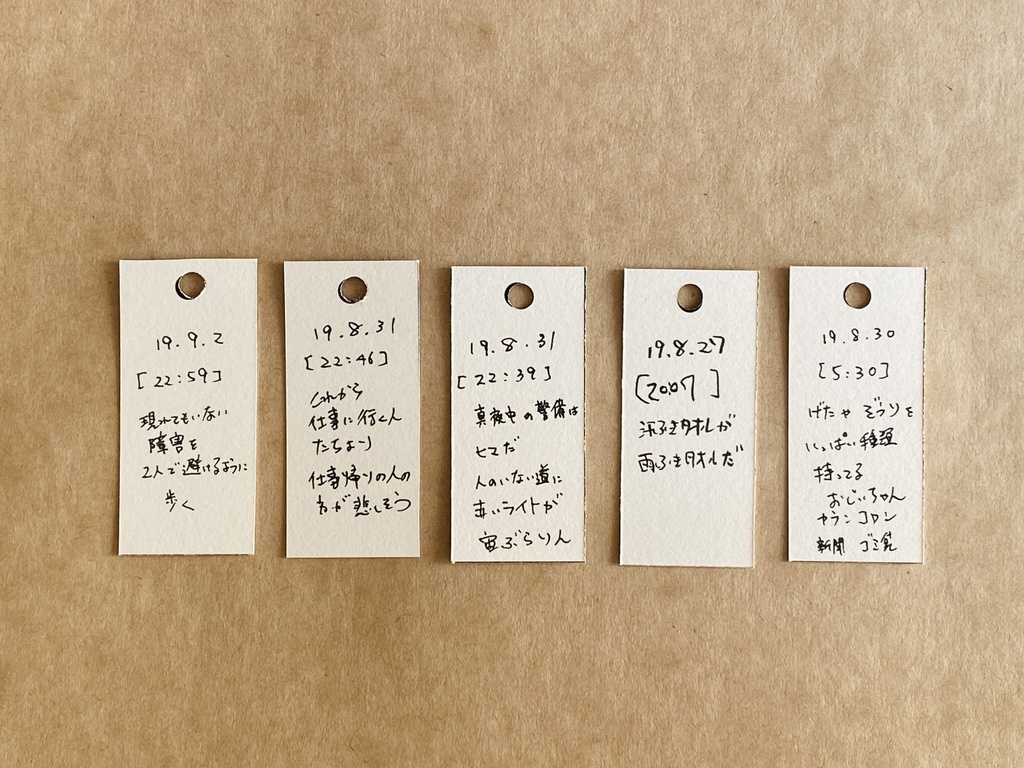 19.9.2
[22:59]
現れてもいない
障害を
2人で避けるように
歩く
19.8.31
[22:46]
これから
仕事に行く人
たちより
仕事帰りの人の
方が悲しそう
19.8.31
[22:39]
真夜中の警備は
ヒマだ
人のいない道に
赤いライトが
宙ぶらりん
19.8.27
[20:07]
汗ふきタオルが
雨ふきタオルだ
19.8.30
[5:30]
げたやぞうりを
いっぱい種類
持ってる
おじいちゃん
カランコロン
新聞 ゴミ